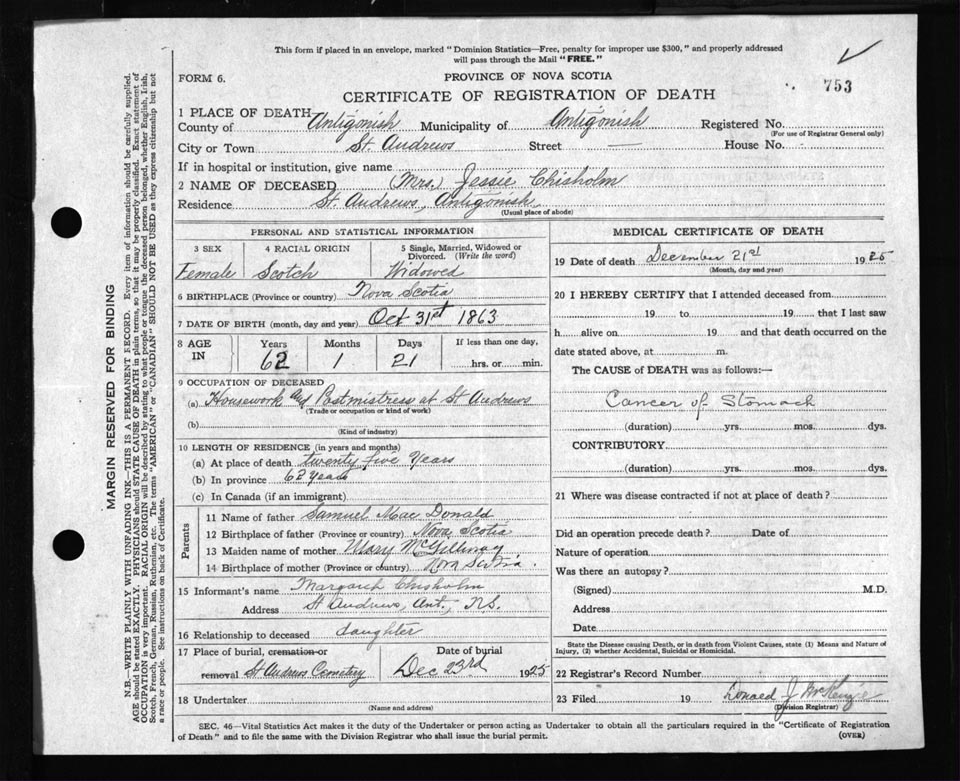 This form if placed in an envelope, marked "Dominion Statistics—Free, penalty for improper use $300," and properly addressed
will pass through the Mail "FREE."
FORM 6.
PROVINCE OF NOVA SCOTIA
753
CERTIFICATE OF REGISTRATION OF DEATH
1 PLACE OF DEATH
County of Antigonish Municipality of Antigonish Registered No.
(For use of Registrar General only)
City or Town St. Andrews Street — House No.
If in hospital or institution, give name
2 NAME OF DECEASED (Mrs.) Jessie Chisholm
Residence St. Andrews, Antigonish
(Usual place of abode)
PERSONAL AND STATISTICAL INFORMATION
3 SEX 4 RACIAL ORIGIN 5 Single, Married, Widowed or
Divorced. (Write the word)
Female Scotch Widowed
6 BIRTHPLACE (Province or country) Nova Scotia
7 DATE OF BIRTH (month, day and year) Oct 31st 1863
8 AGE IN Years Months Days If less than one day,
62 1 21 hrs. or min.
9 OCCUPATION OF DECEASED
(a) Housework and Postmistress at St Andrews
(Trade or occupation or kind of work)
(b)
(Kind of industry)
10 LENGTH OF RESIDENCE (in years and months)
(a) At place of death twenty five Years
(b) In province 62 years
(c) In Canada (if an immigrant)
Parents
11 Name of father Samuel Mac Donald
12 Birthplace of father (Province or country) Nova Scotia
13 Maiden name of mother Mary McGillivray
14 Birthplace of mother (Province or country) Nova Scotia.
15 Informant's name Margaret Chisholm
Address St Andrews, Ant., N.S.
16 Relationship to deceased daughter
17 Place of burial, cremation or Date of burial
removal St Andrews Cemetry Dec 23rd 1925
18 Undertaker
(Name and address)
MEDICAL CERTIFICATE OF DEATH
19 Date of death December 21st 1925
(Month, day and year)
20 I HEREBY CERTIFY that I attended deceased from
19 to 19 that I last saw
h alive on 19 and that death occurred on the
date stated above, at m.
The CAUSE of DEATH was as follows:—
Cancer of Stomach
(duration) yrs. mos. dys.
CONTRIBUTORY
(duration) yrs. mos. dys.
21 Where was disease contracted if not at place of death?
Did an operation precede death? Date of
Nature of operation
Was there an autopsy?
(Signed) M.D.
Address
Date
State the Disease causing Death, or in death from Violent Causes, state (1) Means and Nature of
Injury, (2) whether Accidental, Suicidal or Homicidal.
22 Registrar's Record Number
23 Filed 19 Donald J McKenzie
(Division Registrar)
SEC. 46—Vital Statistics Act makes it the duty of the Undertaker or person acting as Undertaker to obtain all the particulars required in the "Certificate of Registration
of Death" and to file the same with the Division Registrar who shall issue the burial permit.
(OVER)
MARGIN RESERVED FOR BINDING
N.B.—WRITE PLAINLY WITH UNFADING INK—THIS IS A PERMANENT RECORD. Every item of information should be carefully supplied.
AGE should be stated EXACTLY. PHYSICIANS should STATE CAUSE OF DEATH in plain terms, so that it may be properly classified. Exact statement of
OCCUPATION is very important. RACIAL ORIGIN will be described by stating to what people or tongue the deceased person belonged, whether English, Irish,
Scotch, French, German, Russian, Ruthenian, etc. The terms "AMERICAN" or "CANADIAN" SHOULD NOT BE USED as they express citizenship but not
a race or people. See instructions on back of Certificate.